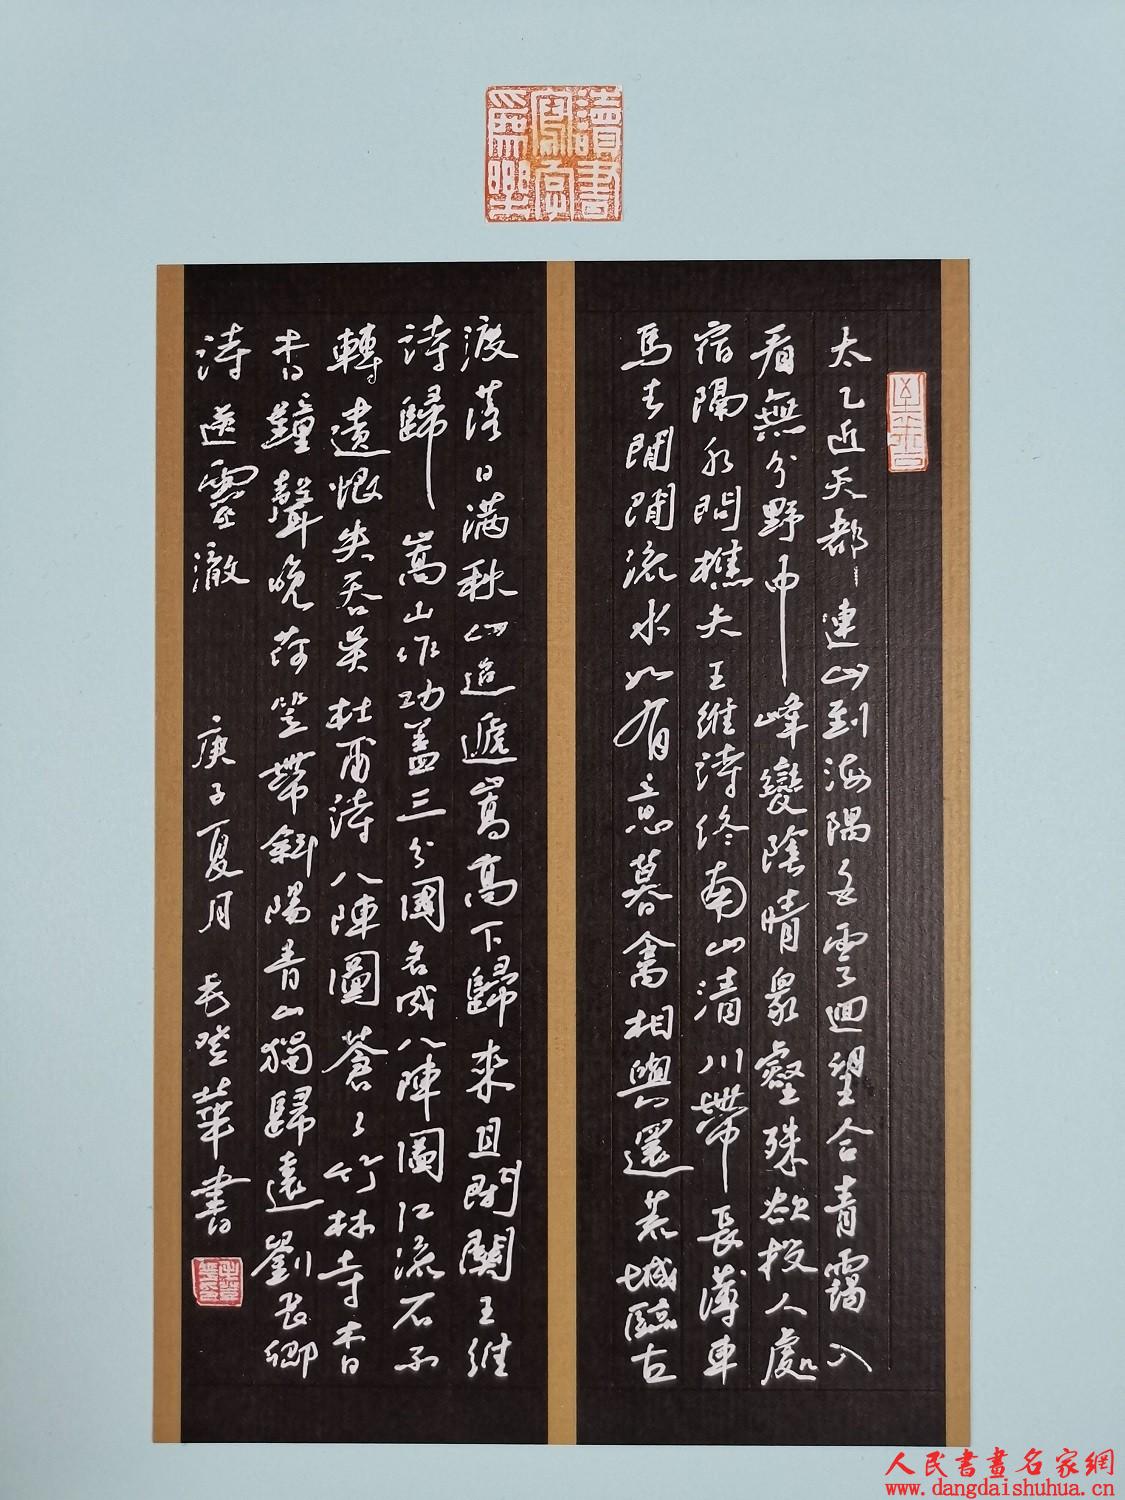 讀書
寫字
爲樂
太乙近天都連山到海隅白雲迴望合青靄入
看無分野中峰變陰晴衆壑殊欲投人處
宿隔水問樵夫王維詩終南山清川帶長薄車
馬去閒閒流水如有意暮禽相與還荒城臨古
渡落日滿秋山迢遞嵩高下歸來且閉關王維
詩歸嵩山作功蓋三分國名成八陣圖江流石不
轉遺恨失吞吳杜甫詩八陣圖蒼々竹林寺杳
杳鐘聲晚荷笠帶斜陽青山獨歸遠劉長卿
詩送靈澈 庚子夏月 毛登華書
人民書畫名家網
www.dangdaishuhua.cn